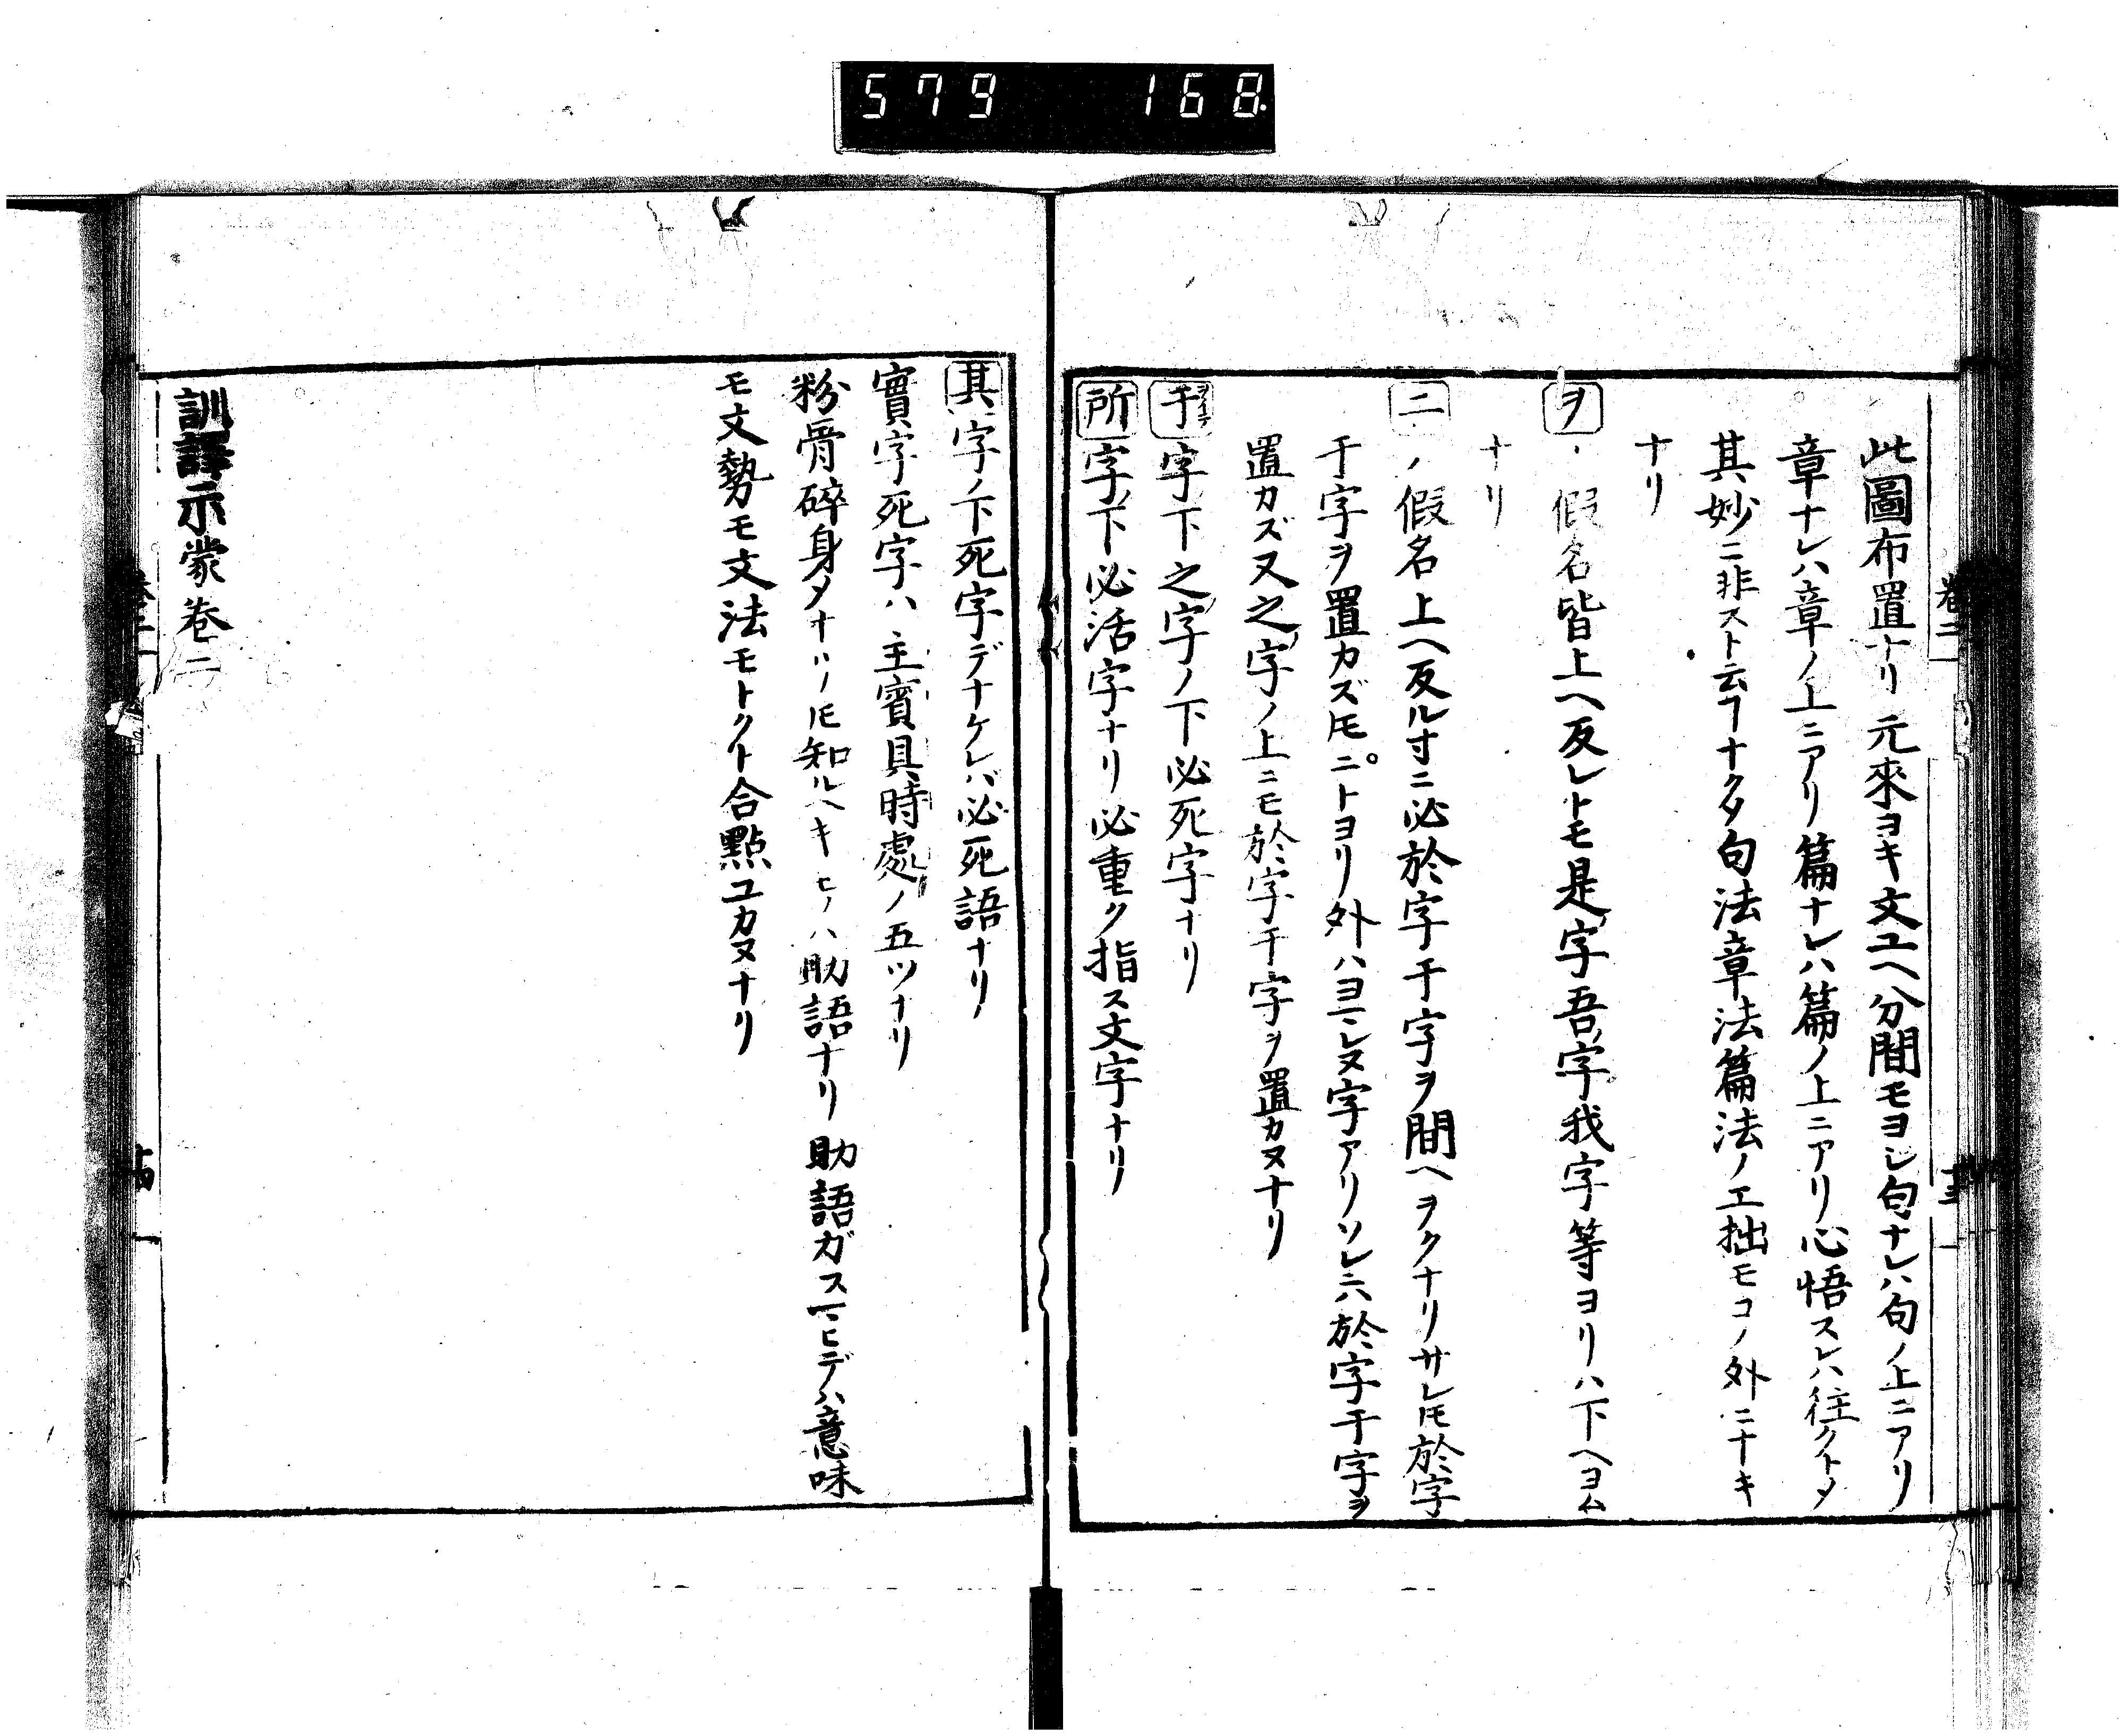 579 168
卷二
此圖布置ナリ元來ヨキ文ユヘ分間モヨシ句ナレハ句ノ上ニアリ
章ナレハ章ノ上ニアリ篇ナレハ篇ノ上ニアリ心悟スレハ往クトメ
其妙ニ非スト云ヿナクタ句法章法篇法ノ工拙モコノ外ニナキ
ナリ
ヲ、假名皆上ヘ反レトモ是字吾字我字等ヨリハ下ヘヨム
ナリ
ニノ假名上ヘ反ル寸ニ必於字于字ヲ間ヘヲクナリサレ𪜈於字
于字ヲ置カズ𪜈ニトヨリ外ハヨマレヌ字アリソレニハ於字于字ヲ
置カズ又之字ノ上ニモ於字于字ヲ置カヌナリ
于字下之字ノ下必死字ナリ
所字下必活字ナリ必重ク指ス文字ナリ
其字ノ下死字デナケレバ必死語ナリ
實字死字ハ主賓具時處ノ五ツナリ
粉骨碎身メナリ𪜈知ルヘキヒノハ助語ナリ助語ガスマヒデハ意味
モ文勢モ文法モトクト合點ユカヌナリ
訓譯示蒙卷二